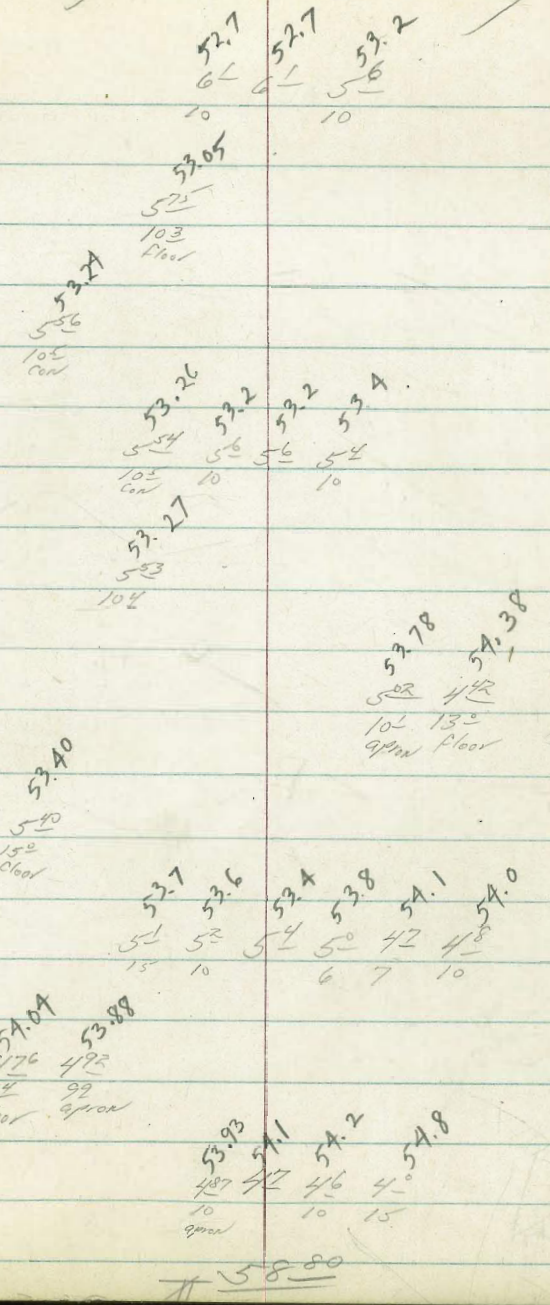 52.7 52.7 53.2
6¹ 6¹ 5⁶
10 10
53.05
5⁷⁵
10³
floor
53.24
5⁵⁶
10⁵
con
53.26 53.2 53.2 53.4
5⁵⁴ 5⁶ 5⁶ 5⁴
10⁵ 10 10
con
53.27
5⁵³
10⁴
53.78 54.38
5⁰² 4⁴²
10¹ 13⁰
apron floor
53.40
5⁴⁰
15⁰
floor
53.7 53.6 53.4 53.8 54.1 54.0
5¹ 5² 5⁴ 5⁰ 4⁷ 4⁸
15 10 6 7 10
54.04 53.88
4⁷⁶ 4⁹²
4 99
or apron
53.93 54.1 54.2 54.8
4⁸⁷ 4⁷ 4⁶ 4⁰
10 10 15
apron
58.80